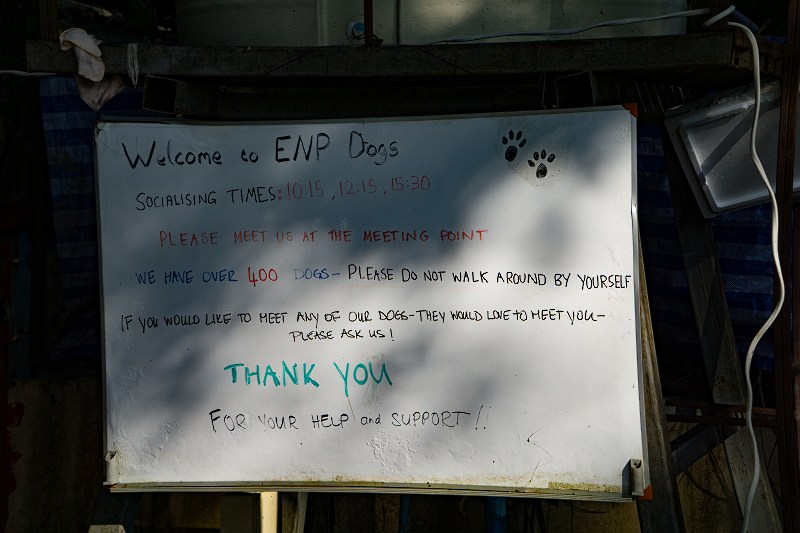 Welcome to ENP Dogs
SOCIALISING TIMES: 10:15, 12:15, 15:30
PLEASE MEET US AT THE MEETING POINT
WE HAVE OVER 400 DOGS- PLEASE DO NOT WALK AROUND BY YOURSELF
IF YOU WOULD LIKE TO MEET ANY OF OUR DOGS-THEY WOULD LOVE TO MEET YOU-
PLEASE ASK US!
THANK YOU
FOR YOUR HELP and SUPPORT!!